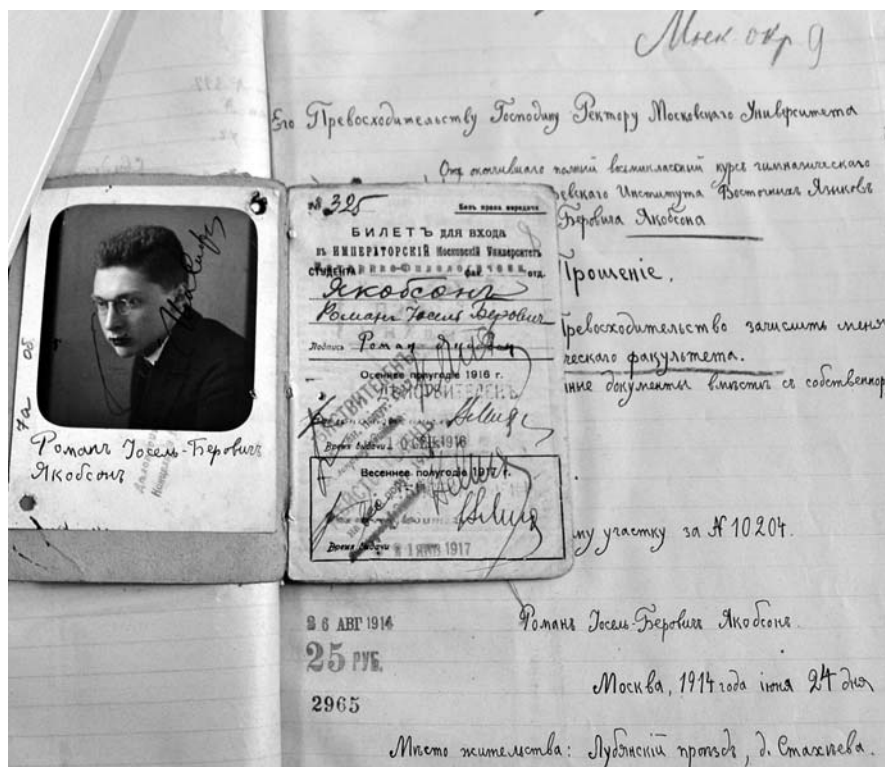 Моск. окр. 9
Его Превосходительству Господину Ректору Московскаго Университета
Окончившаго полный восьмиклассный курсъ гимназическаго
евскаго Института Восточныхъ Языковъ
Беровича Якобсона
Прошеніе.
Превосходительство зачислить меня
ческаго факультета.
документы вмѣстѣ съ собственнор
му участку за № 10204.
Романъ Іосель-Беровичъ Якобсонъ.
Москва, 1914 года іюня 24 дня
Мѣсто жительства: Лубянскій проѣздъ, д. Стахѣева.
26 АВГ 1914
25 РУБ.
2965
7а об.
Романъ Іосель-Беровичъ
Якобсонъ
№ 325
Безъ права передачи
БИЛЕТЪ ДЛЯ ВХОДА
въ ИМПЕРАТОРСКІЙ Московскій Университетъ
СТУДЕНТА фак. отд.
Якобсонъ
Романъ Іосель Беровичъ
Подпись Роман Якобсон
Осеннее полугодіе 1916 г.
ДѢЙСТВИТЕЛЕНЪ
Время выдачи 10 СЕН 1916
Весеннее полугодіе 1917 г.
Время выдачи 1 ЯНВ 1917